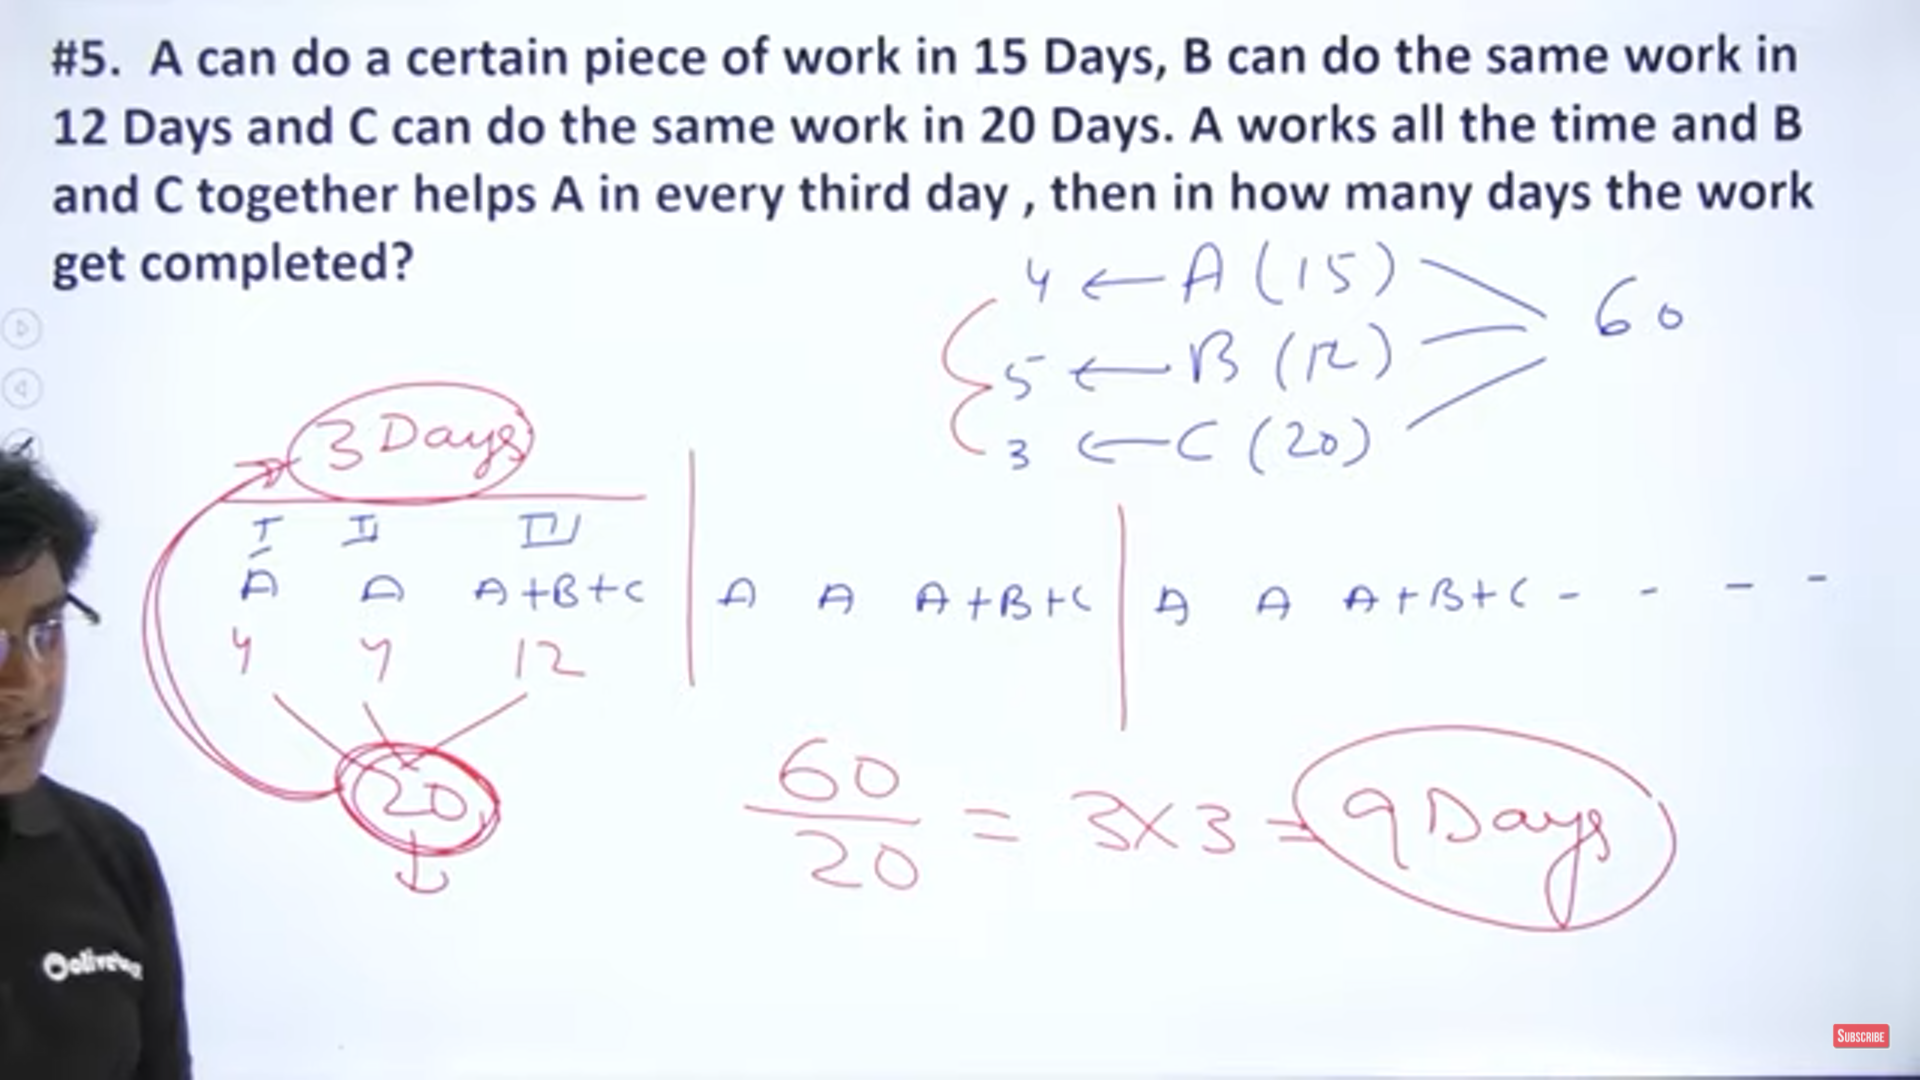 #5. A can do a certain piece of work in 15 Days, B can do the same work in
12 Days and C can do the same work in 20 Days. A works all the time and B
and C together helps A in every third day , then in how many days the work
get completed?
4 ← A (15)
5 ← B (12)
3 ← C (20)
60
3 Days
I II III
A A A+B+C | A A A+B+C | A A A+B+C - - - -
4 4 12
20
60/20 = 3×3 = 9 Days
SUBSCRIBE